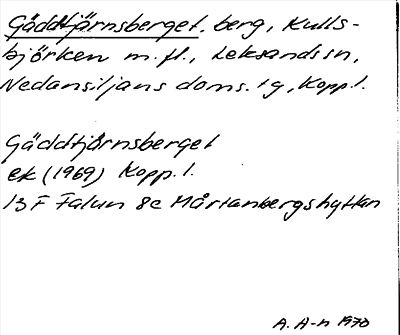 Gäddtjärnsberget, berg, Kulls-
björken m. fl., Leksands sn,
Nedansiljans doms. tg, Kopp. l.
Gäddtjärnsberget
ek (1969) Kopp. l.
13 F Falun 8c Mårtanbergshyttan
A. A-n 1970